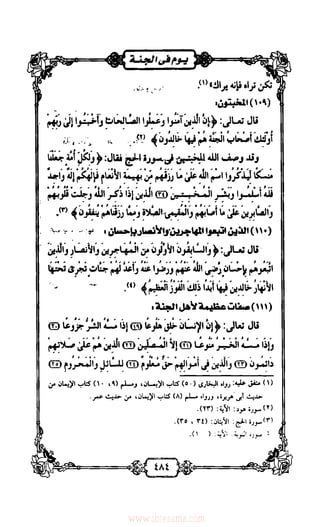 يوم فى الجنة
تكن تراه فإنه يراك»(١).
(١٠٩) المخبتون:
قال تعالى: ﴿إِنَّ الَّذِينَ آمَنُوا وَعَمِلُوا الصَّالِحَاتِ وَأَخْبَتُوا إِلَىٰ رَبِّهِمْ
أُولَٰئِكَ أَصْحَابُ الْجَنَّةِ هُمْ فِيهَا خَالِدُونَ﴾(٢).
وقد وصف الله المخبتين فى سورة الحج فقال: ﴿وَلِكُلِّ أُمَّةٍ جَعَلْنَا
مَنسَكًا لِّيَذْكُرُوا اسْمَ اللَّهِ عَلَىٰ مَا رَزَقَهُم مِّن بَهِيمَةِ الأَنْعَامِ فَإِلَٰهُكُمْ إِلَٰهٌ وَاحِدٌ
فَلَهُ أَسْلِمُوا وَبَشِّرِ الْمُخْبِتِينَ (٣٤) الَّذِينَ إِذَا ذُكِرَ اللَّهُ وَجِلَتْ قُلُوبُهُمْ
وَالصَّابِرِينَ عَلَىٰ مَا أَصَابَهُمْ وَالْمُقِيمِي الصَّلاةِ وَمِمَّا رَزَقْنَاهُمْ يُنفِقُونَ﴾(٣).
(١١٠) الذين اتبعوا المهاجرين والأنصار بإحسان:
قال تعالى: ﴿وَالسَّابِقُونَ الأَوَّلُونَ مِنَ الْمُهَاجِرِينَ وَالأَنصَارِ وَالَّذِينَ
اتَّبَعُوهُم بِإِحْسَانٍ رَّضِيَ اللَّهُ عَنْهُمْ وَرَضُوا عَنْهُ وَأَعَدَّ لَهُمْ جَنَّاتٍ تَجْرِي تَحْتَهَا
الأَنْهَارُ خَالِدِينَ فِيهَا أَبَدًا ذَٰلِكَ الْفَوْزُ الْعَظِيمُ﴾(٤).
(١١١) صفات عظيمة لأهل الجنة:
قال تعالى: ﴿إِنَّ الإِنسَانَ خُلِقَ هَلُوعًا (١٩) إِذَا مَسَّهُ الشَّرُّ جَزُوعًا (٢٠)
وَإِذَا مَسَّهُ الْخَيْرُ مَنُوعًا (٢١) إِلاَّ الْمُصَلِّينَ (٢٢) الَّذِينَ هُمْ عَلَىٰ صَلاتِهِمْ
دَائِمُونَ (٢٣) وَالَّذِينَ فِي أَمْوَالِهِمْ حَقٌّ مَّعْلُومٌ (٢٤) لِّلسَّائِلِ وَالْمَحْرُومِ (٢٥)
(١) متفق عليه: رواه البخارى (٥٠) كتاب الإيمان، ومسلم (٩، ١٠) كتاب الإيمان من
حديث أبى هريرة، ورواه مسلم (٨) كتاب الإيمان، من حديث عمر.
(٢) سورة هود: الآية: (٢٣).
(٣) سورة الحج: الآيتان: (٣٤، ٣٥).
سورة التوبة: الآية:
٤٨٤
www.ibtesama.com